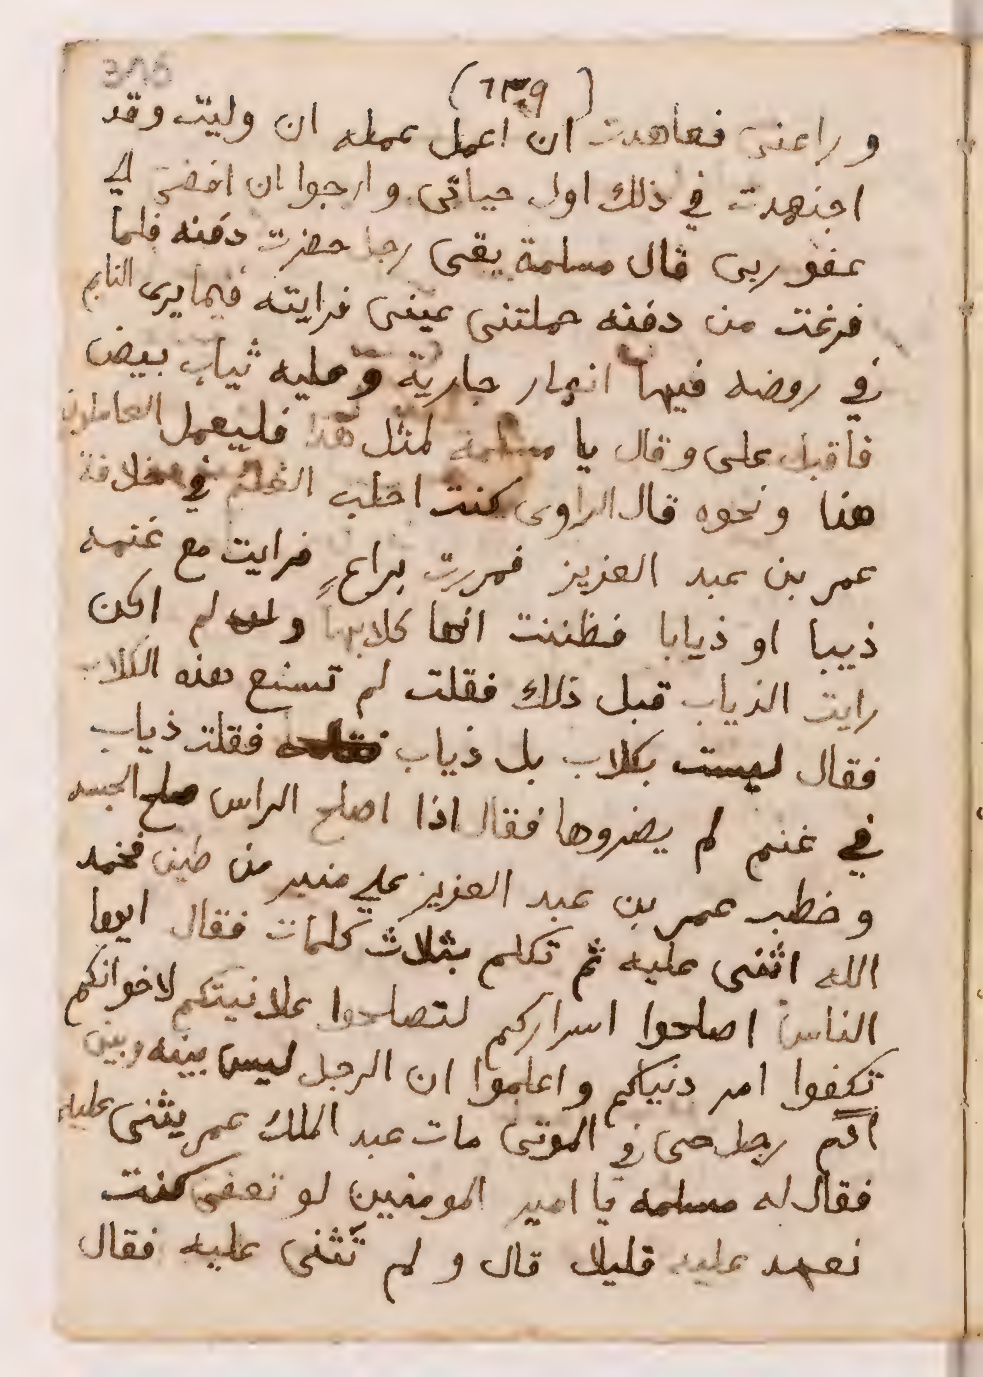 (٦٣٩)
وراعنى فعاهدت ان اعمل عمله ان وليت وقد
اجتهدت في ذلك اول حياتى وارجوا ان افضى الي
عفو ربى قال مسلمة يقى رجا حضرت دفنه فلما
فرغت من دفنه حملتنى عينى فرايته فيما يرى النايم
في روضه فيها انهار جارية وعليه ثياب بيض
فاقبل على وقال يا مسلمة لمثل هذا فليعمل العاملون
هذا ونحوه قال الراوى كنت احلب الغنم في خلافة
عمر بن عبد العزيز فمررت براعٍ فرايت مع غنمه
ذيبا او ذيابا فظننت انها كلابها و لم اكن
رايت الذياب قبل ذلك فقلت لم تسنع هذه الكلاب
فقال ليست بكلاب بل ذياب فقلت ذياب
في غنم لم يضروها فقال اذا اصلح الراس صلح الجسد
وخطب عمر بن عبد العزيز علي منبر من طين فحمد
الله اثنى عليه ثم تكلم بثلاث كلمات فقال ايها
الناس اصلحوا اسراركم لتصلحوا علانيتكم لاخوانكم
تكفوا امر دنياكم واعلموا ان الرجل ليس بينه وبين
ادم رجل حى في الموتى مات عبد الملك عمر يثنى عليه
فقال له مسلمه يا امير المومنين لو تعفى كنت
تعهد عليه قليلا قال ولم تثنى عليه فقال